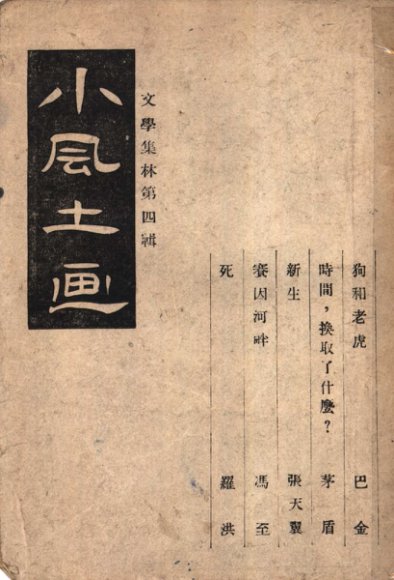 小風土画
文學集林第四輯
狗和老虎 巴金
時間,換取了什麼? 茅盾
新生 張天翼
賽因河畔 馮至
死 羅洪